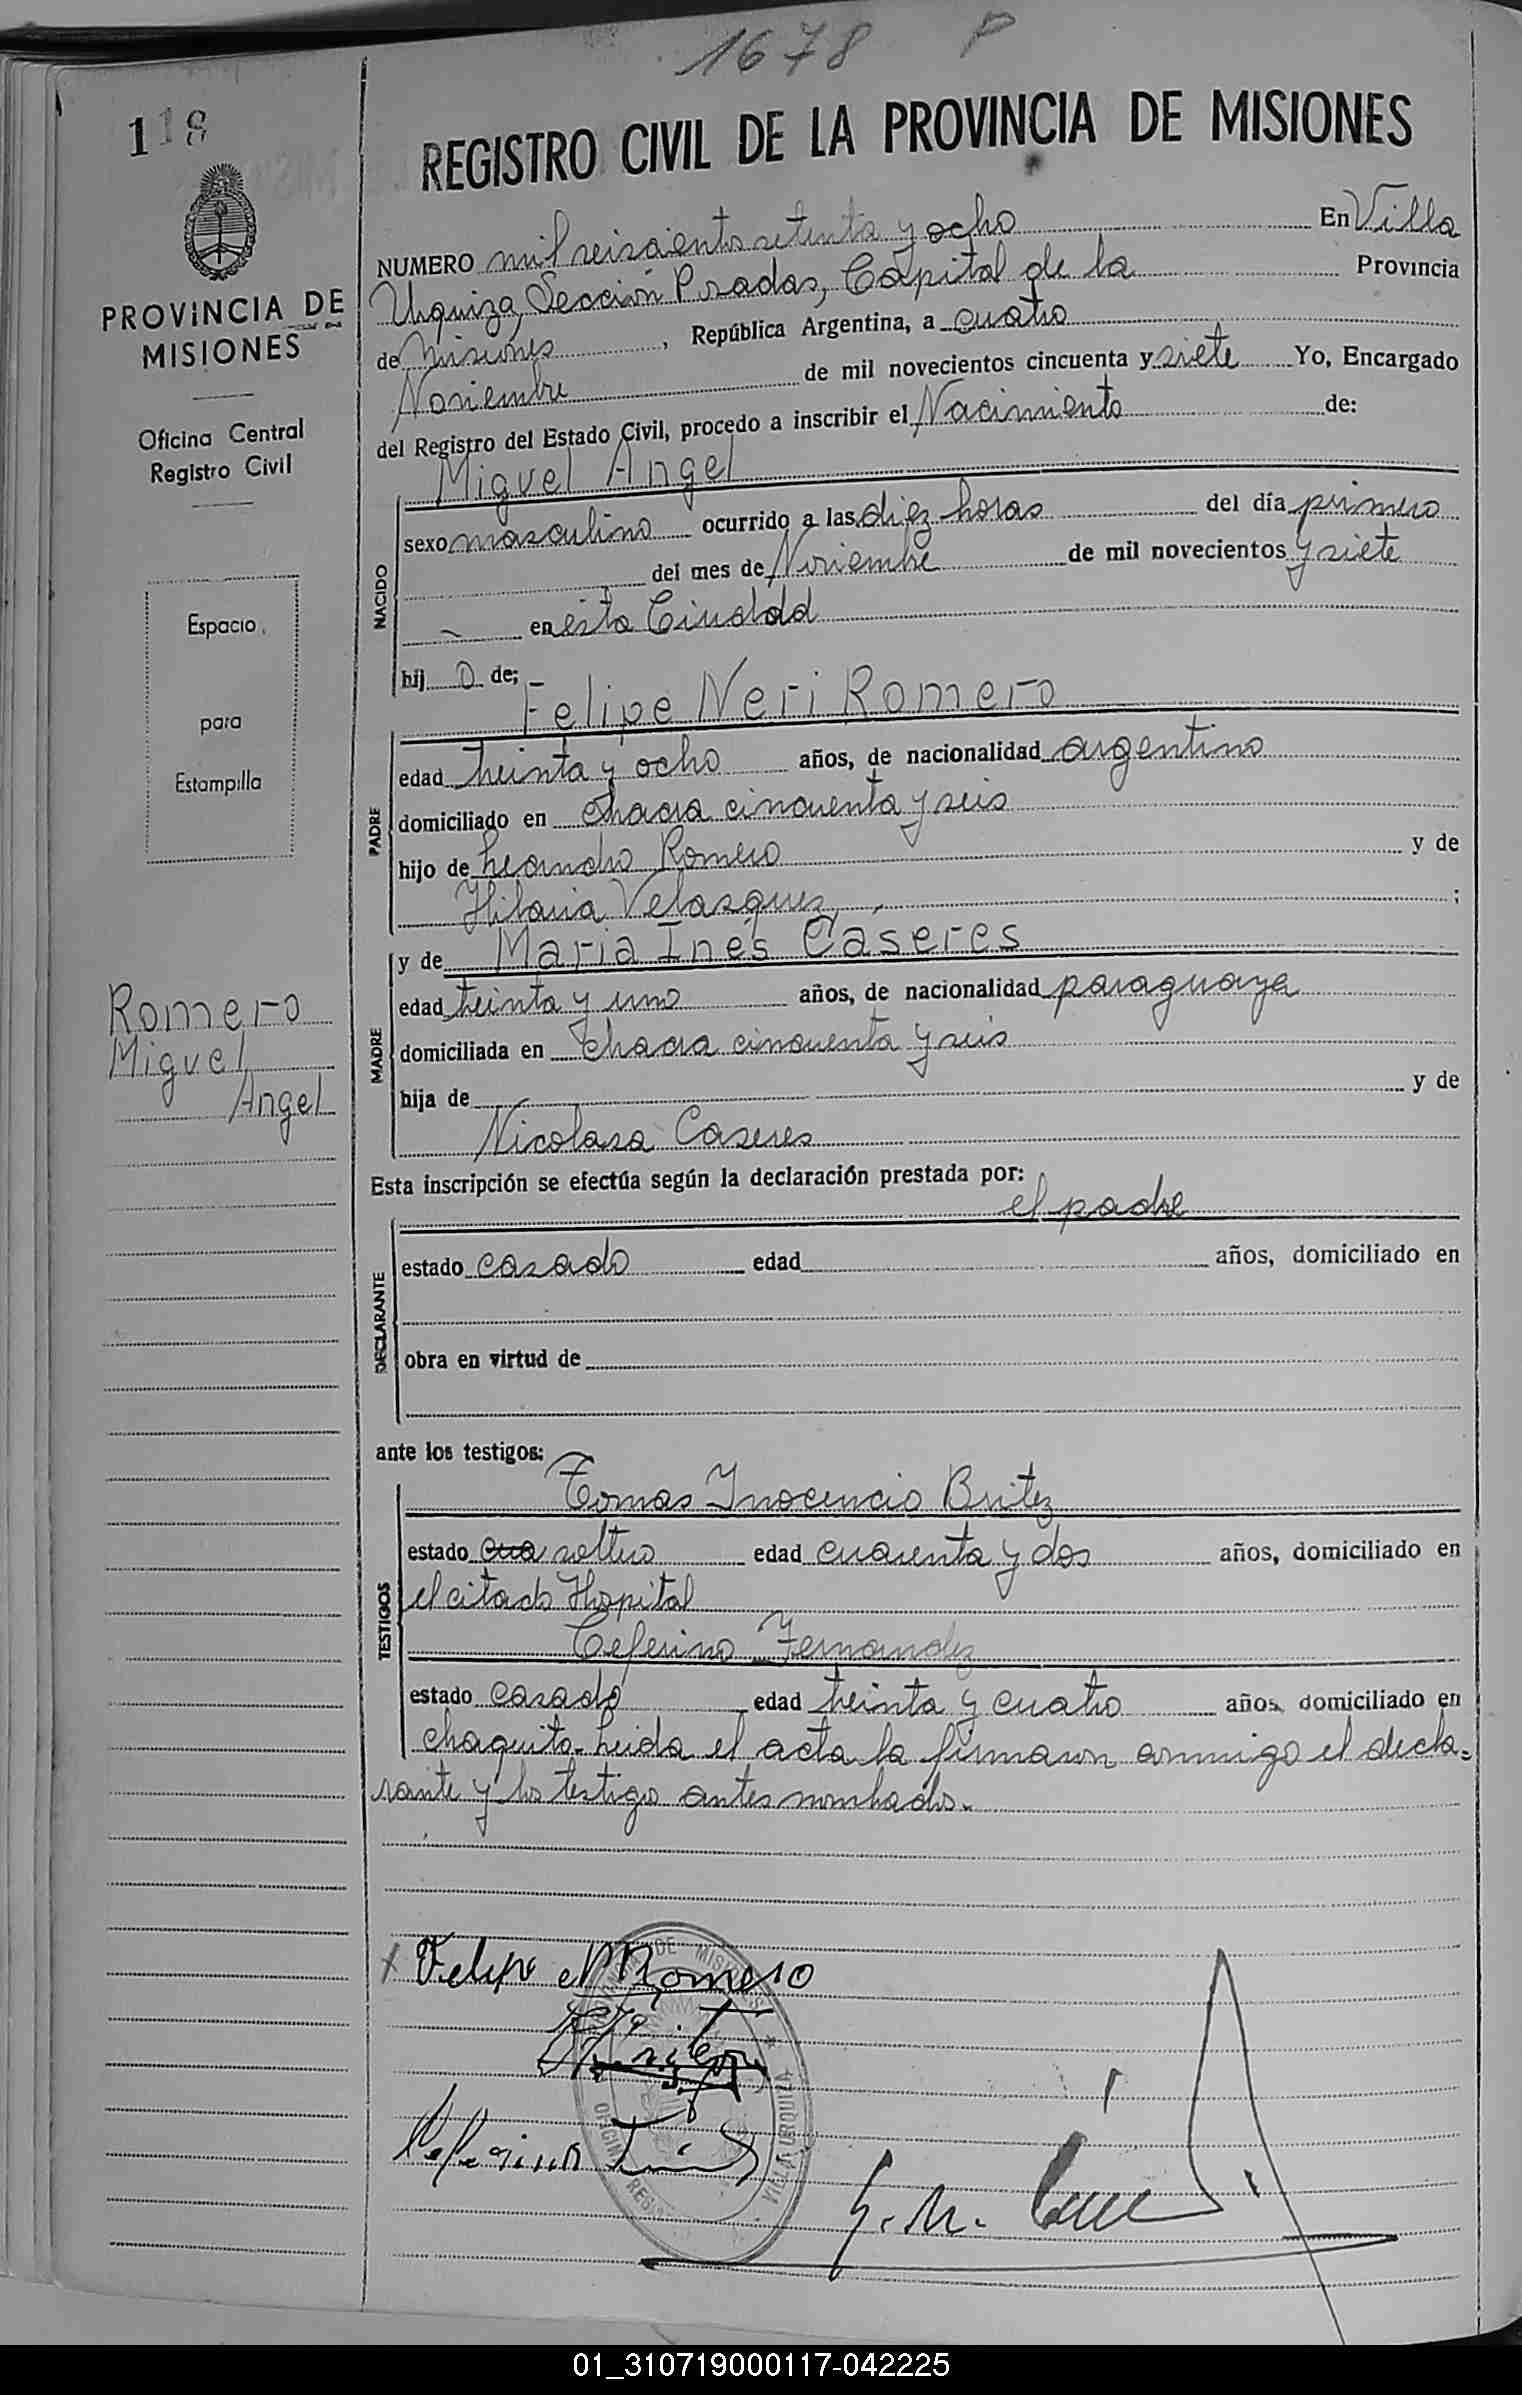 1678 P
118
REGISTRO CIVIL DE LA PROVINCIA DE MISIONES
PROVINCIA DE
MISIONES
Oficina Central
Registro Civil
Espacio
para
Estampilla
Romero
Miguel
Angel
NUMERO mil seiscientos setenta y ocho En Villa
Urquiza, Sección Posadas, Capital de la Provincia
de Misiones, República Argentina, a cuatro
Noviembre de mil novecientos cincuenta y siete Yo, Encargado
del Registro del Estado Civil, procedo a inscribir el Nacimiento de:
Miguel Angel
NACIDO
sexo masculino ocurrido a las diez horas del día primero
del mes de Noviembre de mil novecientos y siete
en esta Ciudad
hij o de;
Felipe Neri Romero
PADRE
edad treinta y ocho años, de nacionalidad argentino
domiciliado en chacra cincuenta y seis
hijo de Leandro Romero y de
Hilaria Velasquez ;
y de Maria Inés Cáseres
MADRE
edad treinta y uno años, de nacionalidad paraguaya
domiciliada en chacra cincuenta y seis
hija de y de
Nicolasa Caseres
Esta inscripción se efectúa según la declaración prestada por:
el padre
DECLARANTE
estado casado edad años, domiciliado en
obra en virtud de
ante los testigos:
Tomas Inocencio Britez
TESTIGOS
estado soltero edad cuarenta y dos años, domiciliado en
el citado Hospital
Ceferino Fernandez
estado casado edad treinta y cuatro años, domiciliado en
chaquito. Leida el acta la firmaron conmigo el decla=
rante y los testigos antes nombrados.
Felipe N Romero
DE MISIONES
VILLA URQUIZA
OFICINA REGIS
01_310719000117-042225